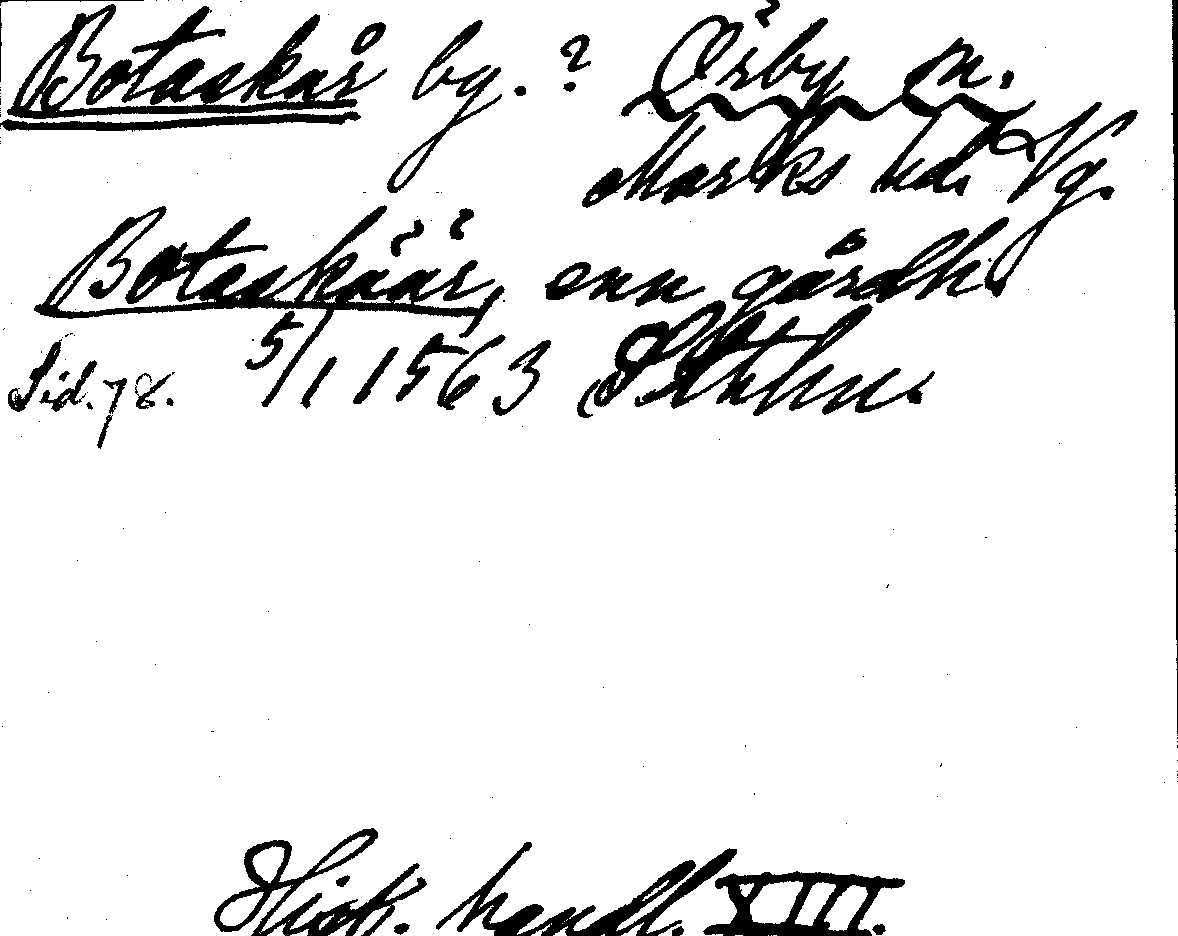 Botaskår by. ? Örby sn.
Marks hd. Vg.
Botaskäär, enn gårdh.
Sid. 78. 5/1 1563 Sthlm.
Hist. handl. XIII.